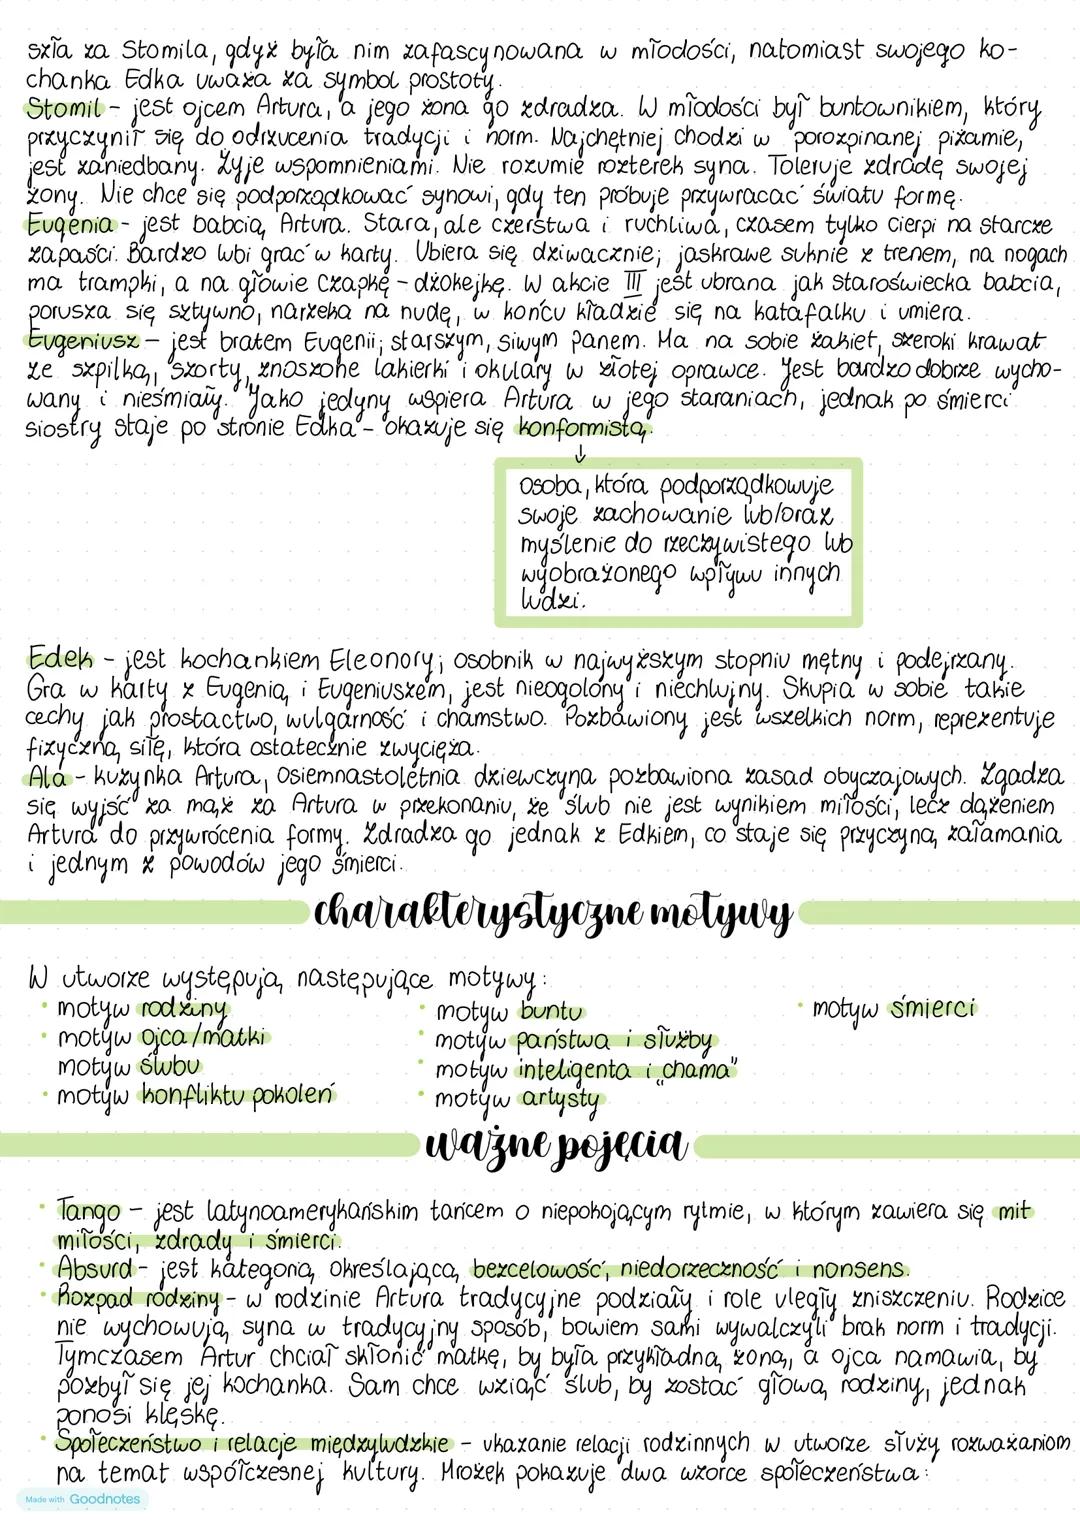 szła za Stomila, gdyż była nim zafascynowana w młodości, natomiast swojego ko-
chanka Edka uważa za symbol prostoty.
Stomil - jest ojcem Artura, a jego żona go zdradza. W młodości był buntownikiem, który
przyczynił się do odrzucenia tradycji i norm. Najchętniej chodzi w porozpinanej piżamie,
jest zaniedbany. Żyje wspomnieniami. Nie rozumie rozterek syna. Toleruje zdradę swojej
żony. Nie chce się podporządkować synowi, gdy ten próbuje przywracać światu formę.
Eugenia - jest babcią Artura. Stara, ale czerstwa i ruchliwa, czasem tylko cierpi na starcze
zapaści. Bardzo lubi grać w karty. Ubiera się dziwacznie; jaskrawe suknie z trenem, na nogach
ma trampki, a na głowie czapkę - dżokejkę. W akcie III jest ubrana jak staroświecka babcia,
porusza się sztywno, narzeka na nudę, w końcu kładzie się na katafalku i umiera.
Eugeniusz - jest bratem Eugenii; starszym, siwym panem. Ma na sobie żakiet, szeroki krawat
ze szpilką, szorty, znoszone lakierki i okulary w złotej oprawce. Jest bardzo dobrze wycho-
wany i nieśmiały. Jako jedyny wspiera Artura w jego staraniach, jednak po śmierci
siostry staje po stronie Edka - okazuje się konformistą.
↓
osoba, która podporządkowuje
swoje zachowanie lub/oraz
myślenie do rzeczywistego lub
wyobrażonego wpływu innych
ludzi.
Edek - jest kochankiem Eleonory; osobnik w najwyższym stopniu mętny i podejrzany.
Gra w karty z Eugenią i Eugeniuszem, jest nieogolony i niechlujny. Skupia w sobie takie
cechy jak prostactwo, wulgarność i chamstwo. Pozbawiony jest wszelkich norm, reprezentuje
fizyczną siłę, która ostatecznie zwycięża.
Ala - kuzynka Artura, osiemnastoletnia dziewczyna pozbawiona zasad obyczajowych. Zgadza
się wyjść za mąż za Artura w przekonaniu, że ślub nie jest wynikiem miłości, lecz dążeniem
Artura do przywrócenia formy. Zdradza go jednak z Edkiem, co staje się przyczyną załamania
i jednym z powodów jego śmierci.
charakterystyczne motywy
W utworze występują następujące motywy:
• motyw rodziny
• motyw ojca/matki
motyw ślubu
• motyw konfliktu pokoleń
• motyw buntu
• motyw państwa i służby
• motyw inteligenta i „chama"
• motyw artysty
• motyw śmierci
ważne pojęcia
• Tango - jest latynoamerykańskim tańcem o niepokojącym rytmie, w którym zawiera się mit
miłości, zdrady i śmierci.
• Absurd - jest kategorią określającą bezcelowość, niedorzeczność i nonsens.
• Rozpad rodziny - w rodzinie Artura tradycyjne podziały i role uległy zniszczeniu. Rodzice
nie wychowują syna w tradycyjny sposób, bowiem sami wywalczyli brak norm i tradycji.
Tymczasem Artur chciał skłonić matkę, by była przykładną żoną, a ojca namawia, by
pozbył się jej kochanka. Sam chce wziąć ślub, by zostać głową rodziny, jednak
ponosi klęskę.
• Społeczeństwo i relacje międzyludzkie - ukazanie relacji rodzinnych w utworze służy rozważaniom
na temat współczesnej kultury. Mrożek pokazuje dwa wzorce społeczeństwa:
Made with Goodnotes